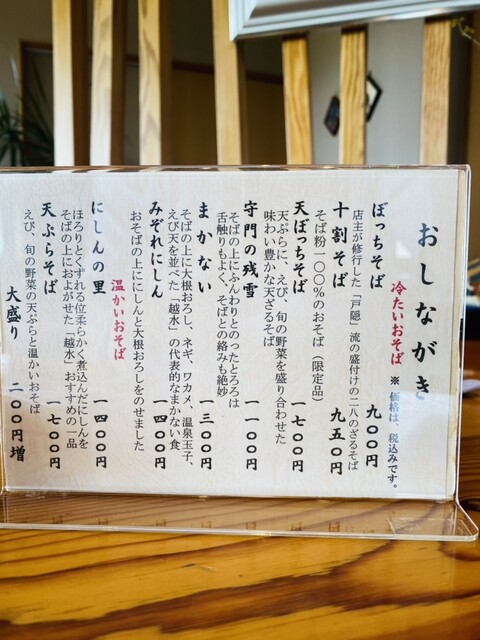 おしながき
冷たいおそば ※価格は、税込みです。
ぼっちそば 九〇〇円
店主が修行した「戸隠」流の盛付けの二八のざるそば
十割そば 九五〇円
そば粉一〇〇%のおそば(限定品)
天ぼっちそば 一七〇〇円
天ぷらに、えび、旬の野菜を盛り合わせた
味わい豊かな天ざるそば
守門の残雪 一一〇〇円
そばの上にふんわりとのったとろろは
舌触りもよく、そばとの絡みも絶妙
まかない 一三〇〇円
そばの上に大根おろし、ネギ、ワカメ、温泉玉子、
えび天を並べた「越水」の代表的なまかない食
みぞれにしん 一四〇〇円
おそばの上ににしんと大根おろしをのせました
温かいおそば
にしんの里 一四〇〇円
ほろりとくずれる位柔らかく煮込んだにしんを
そばの上におよがせた「越水」おすすめの一品
天ぷらそば 一七〇〇円
えび、旬の野菜の天ぷらと温かいおそば
大盛り 二〇〇円増